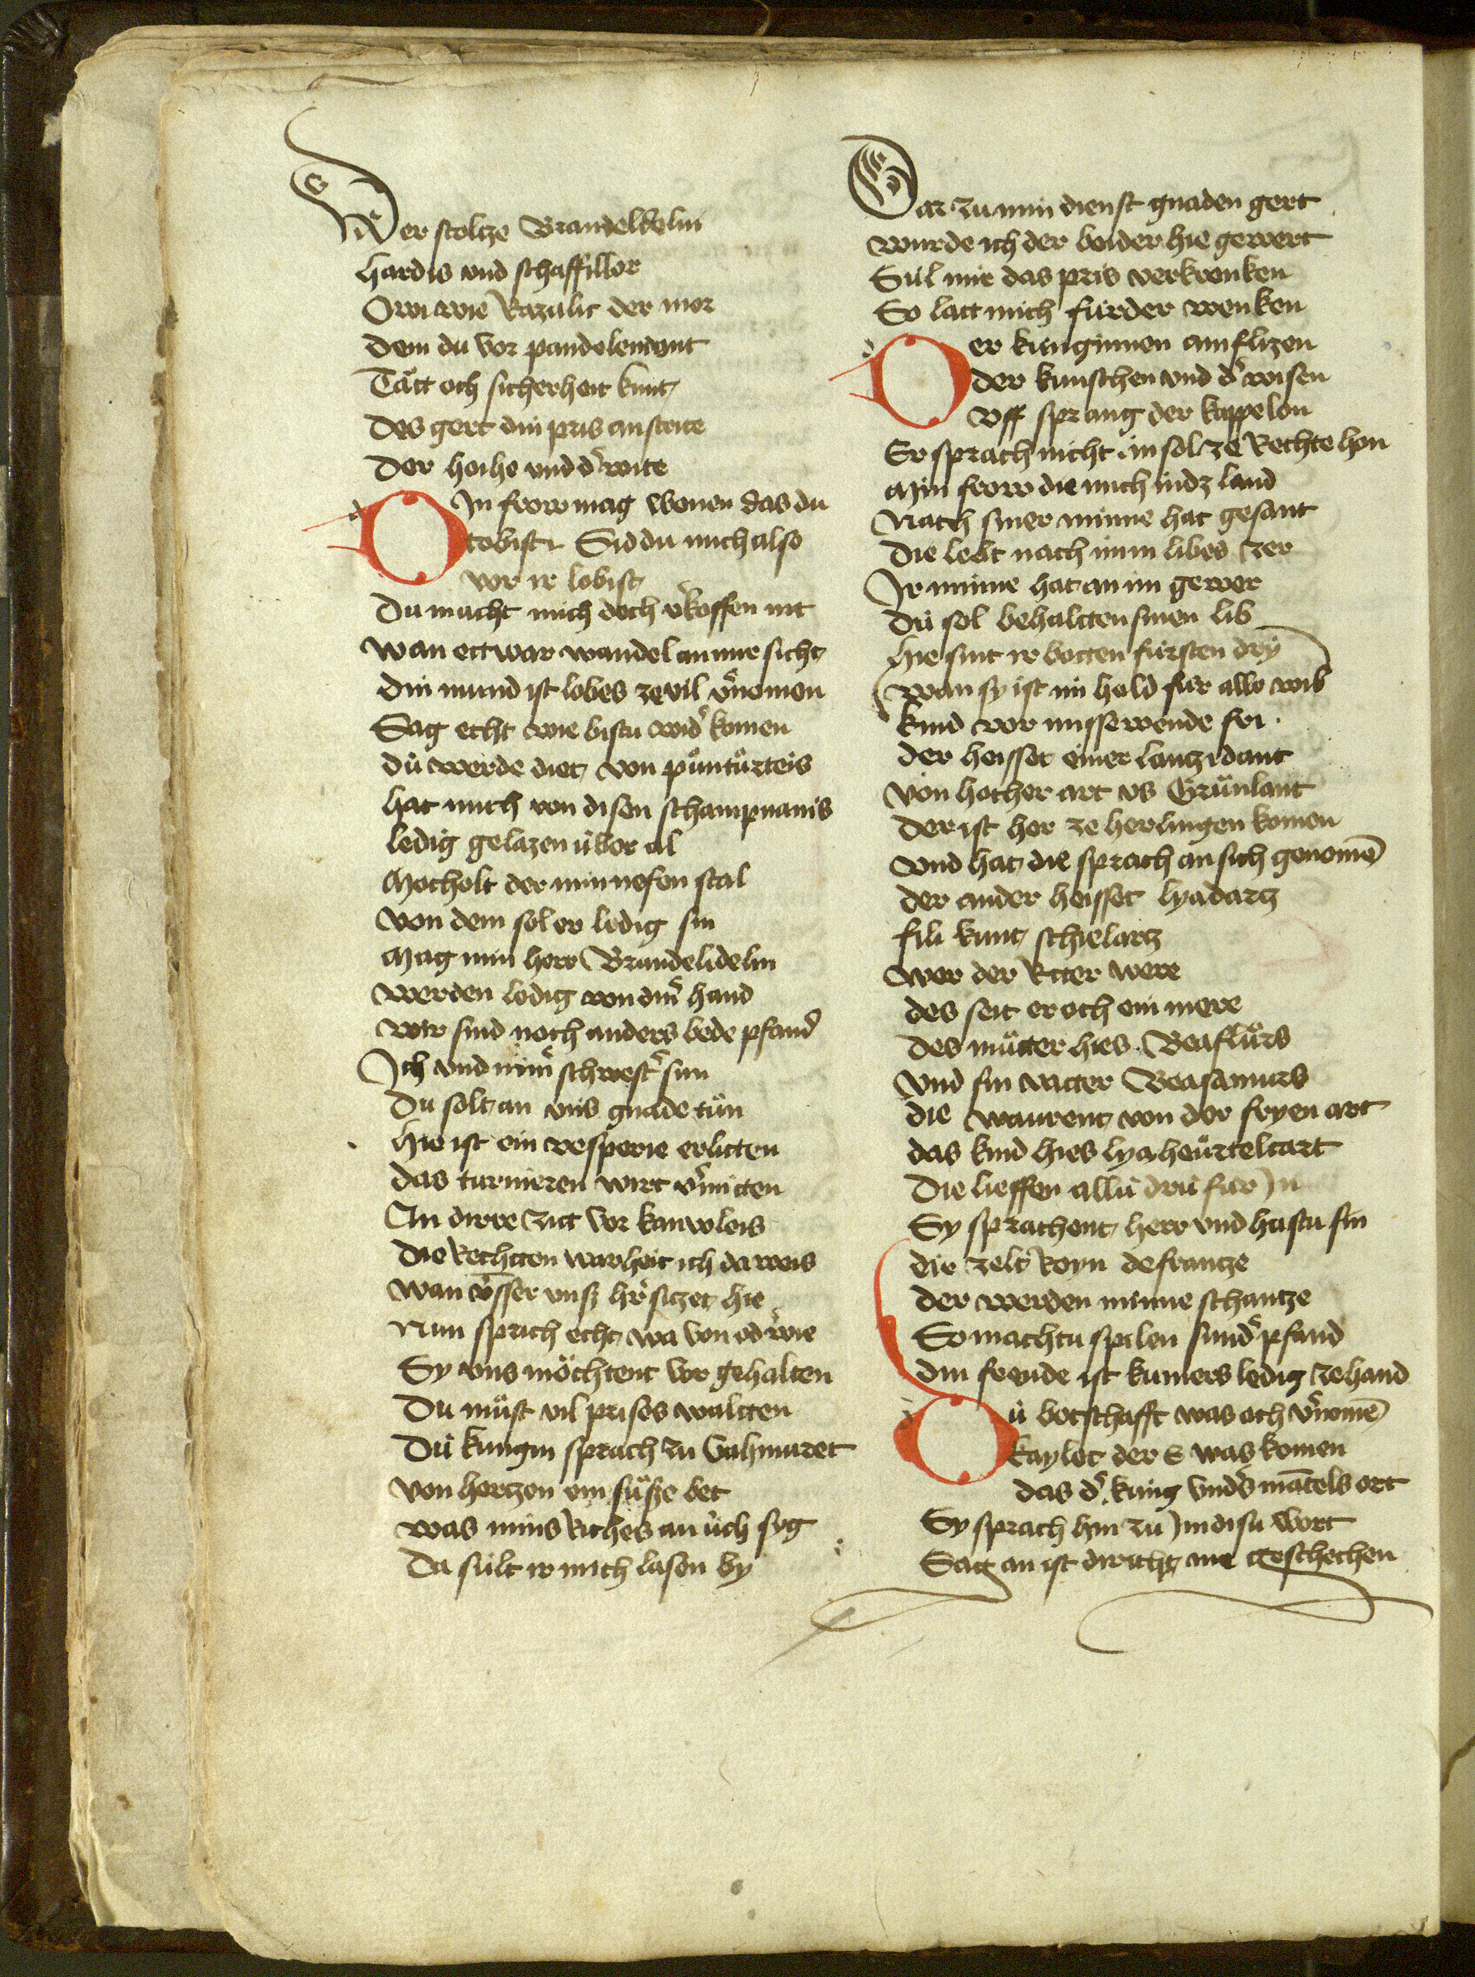 Der stoltze Brandeldelin
hardis vnd schaffillor
Owi wie Razalic der mor
dem du vor pandelemont
Tätt och sicherheit kunt
Des gert din pris an strite
Der hoihe vnd d' wite
Din frow mag wenen das du
tobist Sid du mich also
vor ir lobist
Du macht mich doch v'koffen nit
wan ettwar wandel an mir sicht
din mund ist lobes ze vil v'nomen
Sag echt wie bistu wid' komen
dü werde diet von püntürteis
hat mich von disen schampnanis
ledig gelazen über al
Mocholt der min nefen stal
von dem sol er ledig sin
Mag min herr Brandelidelin
werden ledig von din' hand
wir sind noch anders bede pfand'
Ich vnd min' schwest' sun
Du solt an vns gnade tün
hie ist ein vesperie erlitten
das turnieren wirt v'mitten
An dirre zitt vor kanvoleis
Die Rechtten warheit ich da weis
wan vsser vnß hr' sitzet hie
Nun sprich echt wa von od' wie
Sy vns möchtent vor gehalten
Du müst vil prises waltten
Dü kungin sprach zu Gahmuret
von hertzen ein süsze bet
was mins Riches an üch syg
Da sült ir mich lasen by
Dar zu min dienst gnaden gert
wurde ich der beider hie gewert
Sül mir das pris verkrenken
So latt mich fürder wenken
Der künginnen amflizen
der kunschen vnd d' wisen
vff sprang der kappelon
Er sprach nicht in sol ze Rechte hon
Min frow die mich in dz land
Nach siner minne hat gesant
Die lebt nach imm libes zer
Ir minne hat an im gewer
Dü sol behaltten sinen lib
hie sint ir botten fürsten dry
wan sy ist im hold für alle wib
kind vor missewende fri
der heisset einer lanzidant
von hocher art vs Grünlant
der ist her ze herlingen komen
vnd hat die sprach an sich genome
der ander heisset lyadartz
fili kunt schielartz
wer der Ritter were
des seit er och ein mere
Des mütter hies Beaflürs
vnd sin vatter Beasamurs
die waurent von der fryen art
das kind hies lyaheürteltart
Die lieffen allü drü für In
Sy sprachent herr vnd hastu sin
die zelt Royn de frantze
der werden minne schantze
So machtu spilen sund' pfand
din freude ist kumers ledig zehand
Dü botschafft was och v'nome
kaylet der E was komen
das d' küng vnd's matels ort
Sy sprach hin zu Im disu wort
Sag an ist dir icht me geschechen